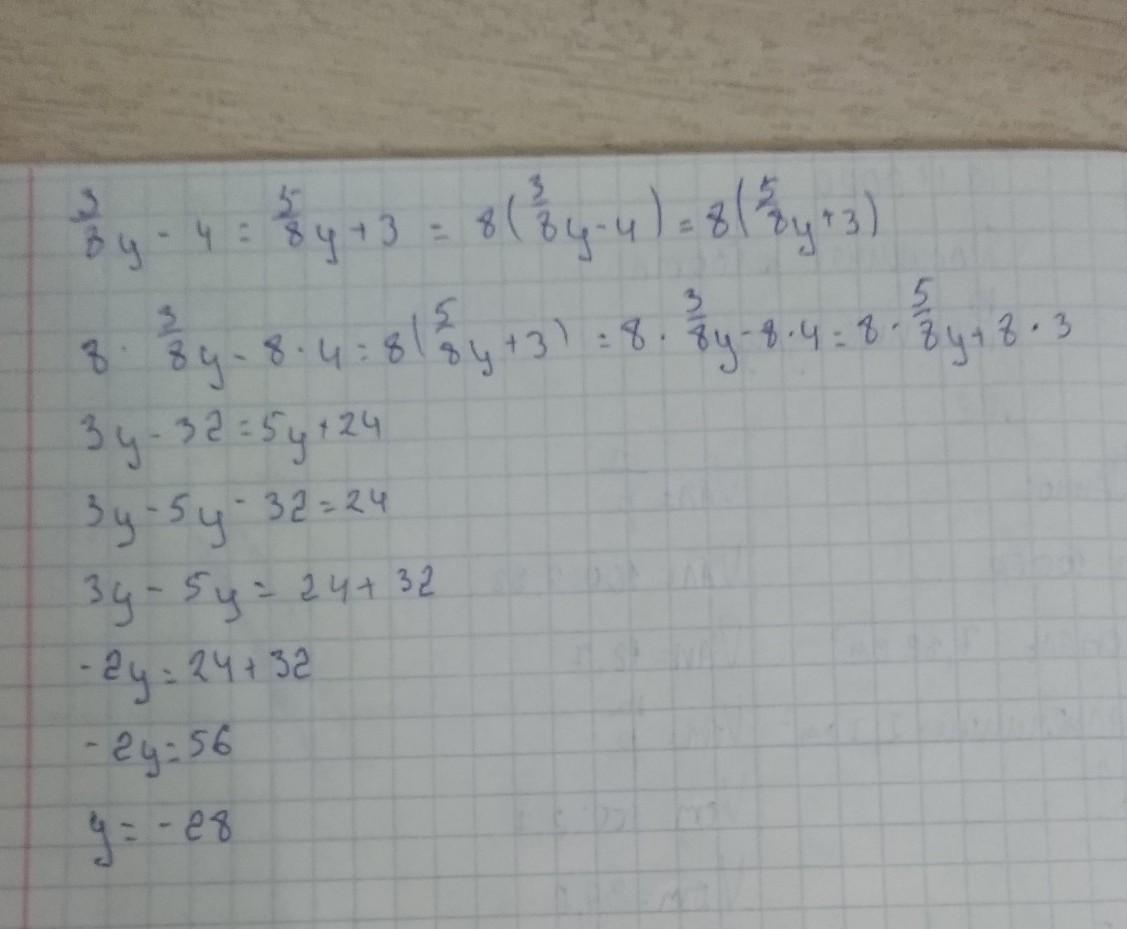 3/8y - 4 = 5/8y + 3 = 8(3/8y - 4) = 8(5/8y + 3)
8 · 3/8y - 8 · 4 = 8(5/8y + 3) = 8 · 3/8y - 8 · 4 = 8 · 5/8y + 8 · 3
3y - 32 = 5y + 24
3y - 5y - 32 = 24
3y - 5y = 24 + 32
-2y = 24 + 32
-2y = 56
y = -28